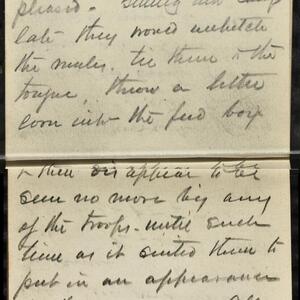 pleased. 
late they would unhitch
the mules. tie them to the
tongue, throw a little
corn into the feed box
& then disappear to be
seen no more by any
of the troops until such
time as it suited them to
put in an appearance